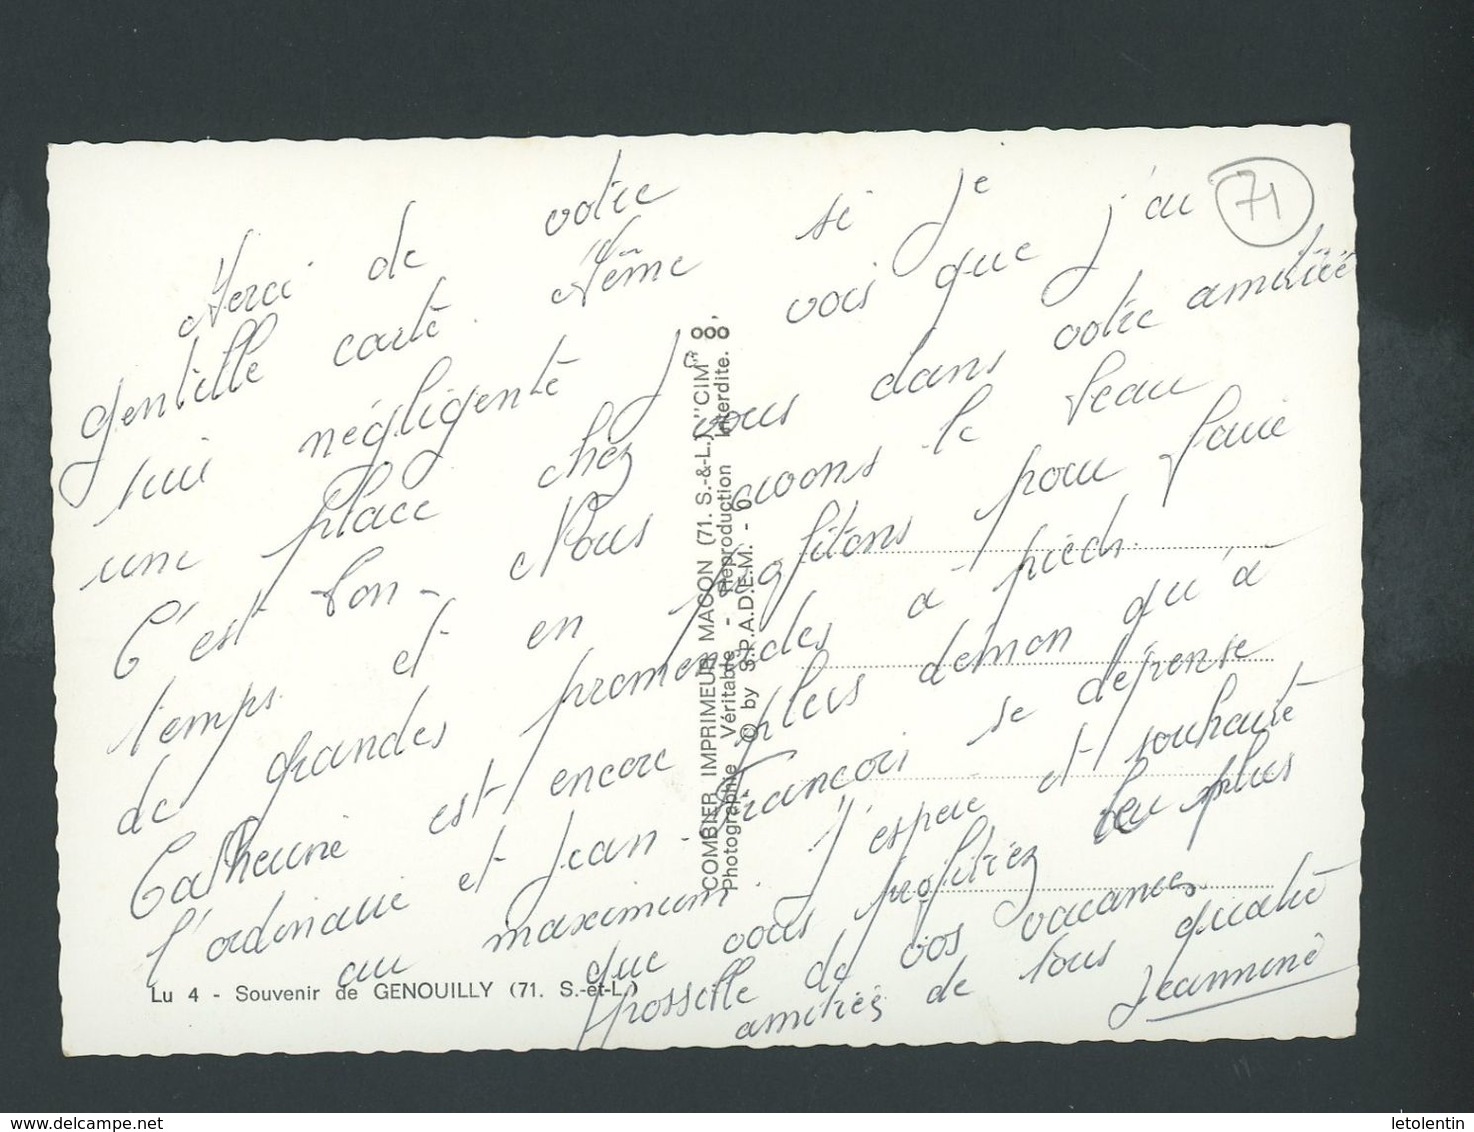 Merci de votre
gentille carte. Même si je
suis négligente je vois que j'ai
une place chez vous dans votre amitiée
C'est bon - Nous avons le beau
temps et en profitons pour faire
de grandes promenades à pieds.
Catherine est encore plus démon qu'à
l'ordinaire et Jean-François se dépense
au maximum. J'espère et souhaite
que vous profitiez le plus
possible de vos vacances.
amitiés de tous quatre
Jeannine
71
COMBIER IMPRIMEUR MACON (71. S.-&-L.) "CIM"
Photographie Véritable - Reproduction Interdite.
© by S.P.A.D.E.M. - 0
Lu 4 - Souvenir de GENOUILLY (71. S.-et-L.)
delcampe.net
letolentin